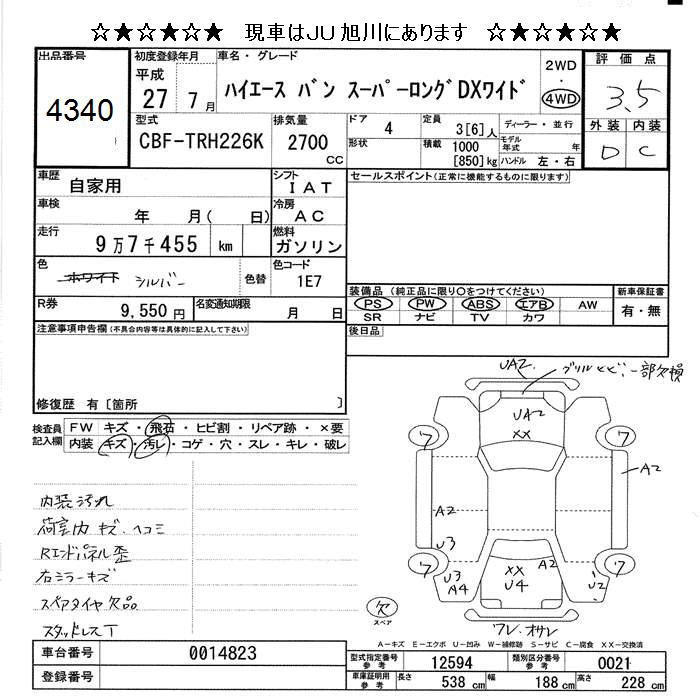 ☆★☆★☆★ 現車はJU旭川にあります ☆★☆★☆★
出品番号 4340
初度登録年月 平成 27 7月
車名・グレード ハイエース バン スーパーロングDXワイド
2WD ・ 4WD
評価点 3.5
型式 CBF-TRH226K
排気量 2700 CC
ドア 4
形状
定員 3[6]人
積載 1000 [850]kg
ディーラー・並行
モデル年式 年
ハンドル 左・右
外装 内装
D C
車歴 自家用
シフト IAT
セールスポイント(正常に機能するものに限ります)
車検 年 月( 日)
冷房 AC
走行 9万7千455 km
燃料 ガソリン
色 ホワイト シルバー 色替
色コード 1E7
装備品(純正品に限り○をつけてください)
新車保証書
PS PW ABS エアB AW
有・無
SR ナビ TV カワ
R券 9,550円
名変通知期限 月 日
後日品
注意事項申告欄(不具合内容等は具体的に記入して下さい)
修復歴 有〔箇所 〕
検査員記入欄
FW キズ・飛石・ヒビ割・リペア跡・×要
内装 キズ・汚レ・コゲ・穴・スレ・キレ・破レ
内装汚れ
荷室内キズ、ヘコミ
Rエンドパネル歪
右ミラーキズ
スペアタイヤ欠品
スタッドレスT
UA2
グリルとび、一部欠損
UA2
XX
ワ ワ
A2
A2
U3
ワ ワ
U3
A4
XX
U4
A2
U2
欠
スペア
ワレ、オサレ
A-キズ E-エクボ U-凹み W-補修跡 S-サビ C-腐食 XX-交換済
車台番号 0014823
型式指定番号 参考 12594
類別区分番号 参考 0021
登録番号
車庫証明用 参考 長さ 538 cm 幅 188 cm 高さ 228 cm